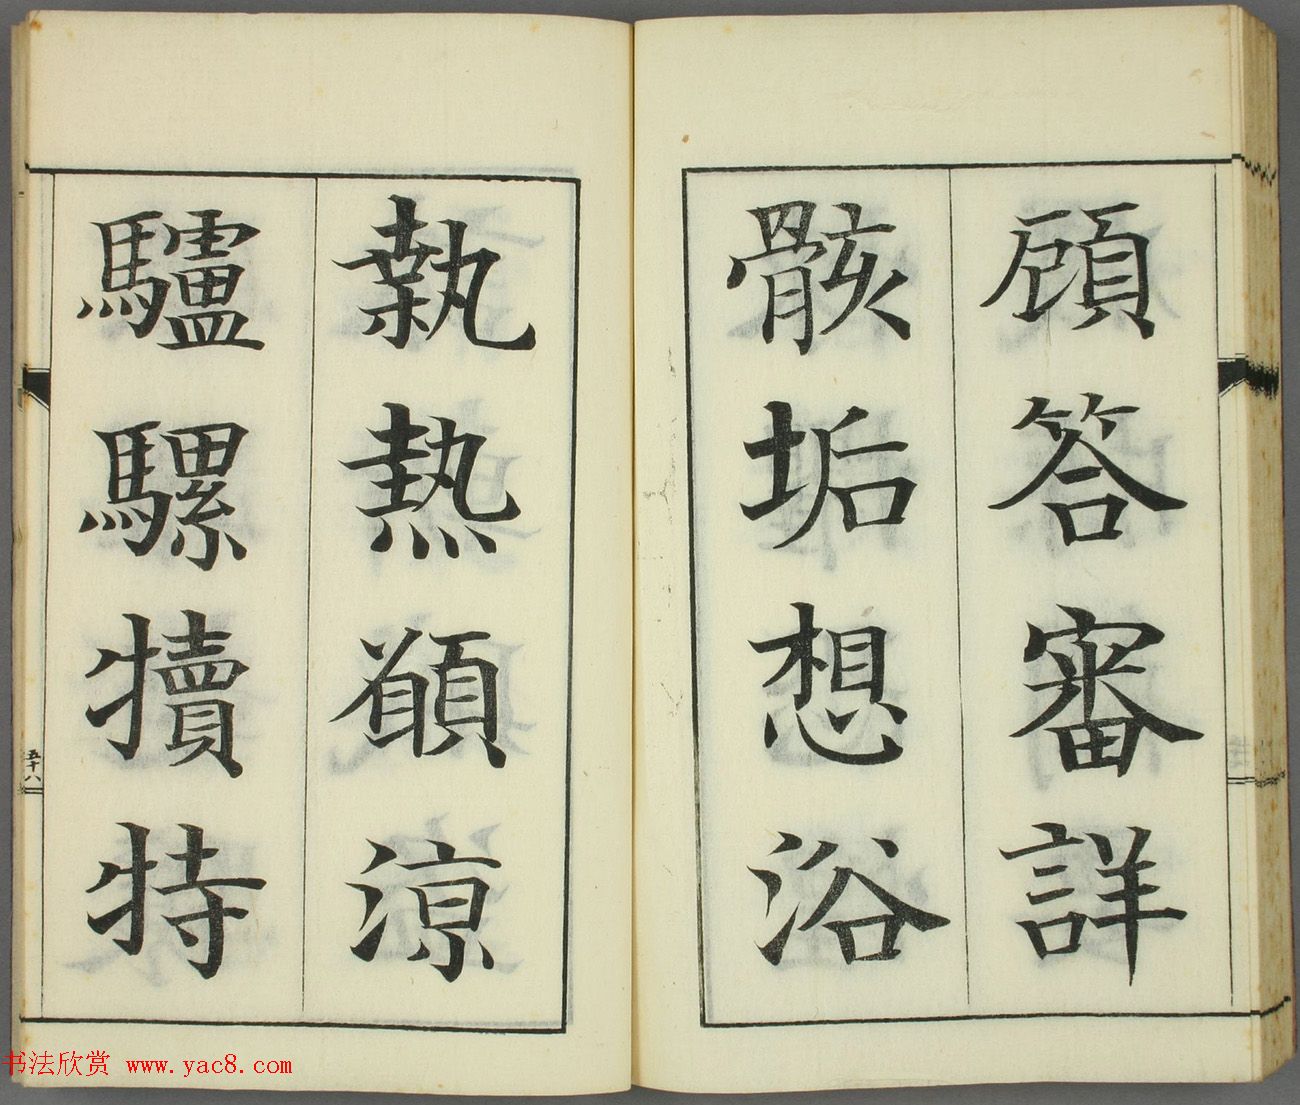 顧答審詳
骸垢想浴
執熱願涼
驢騾犢特
五十八
书法欣赏 www.yac8.com